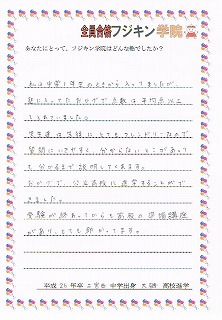 全員合格フジキン学院
あなたにとって、フジキン学院はどんな塾でしたか？
私は中学1年生のときから入ってましたが、
塾に入ってたおかげで点数は平均点以上
とれていました。
先生達は生徒にとてもフレンドリーなので
質問しにいきやすく、分からないところがあって
も分かるまで説明してくれます。
おかげで、公立高校に進学することがで
きました。
受験が終わってからも高校の準備講座
があり、とても助かってます。
平成26年卒 二宮西 中学出身 大磯 高校進学